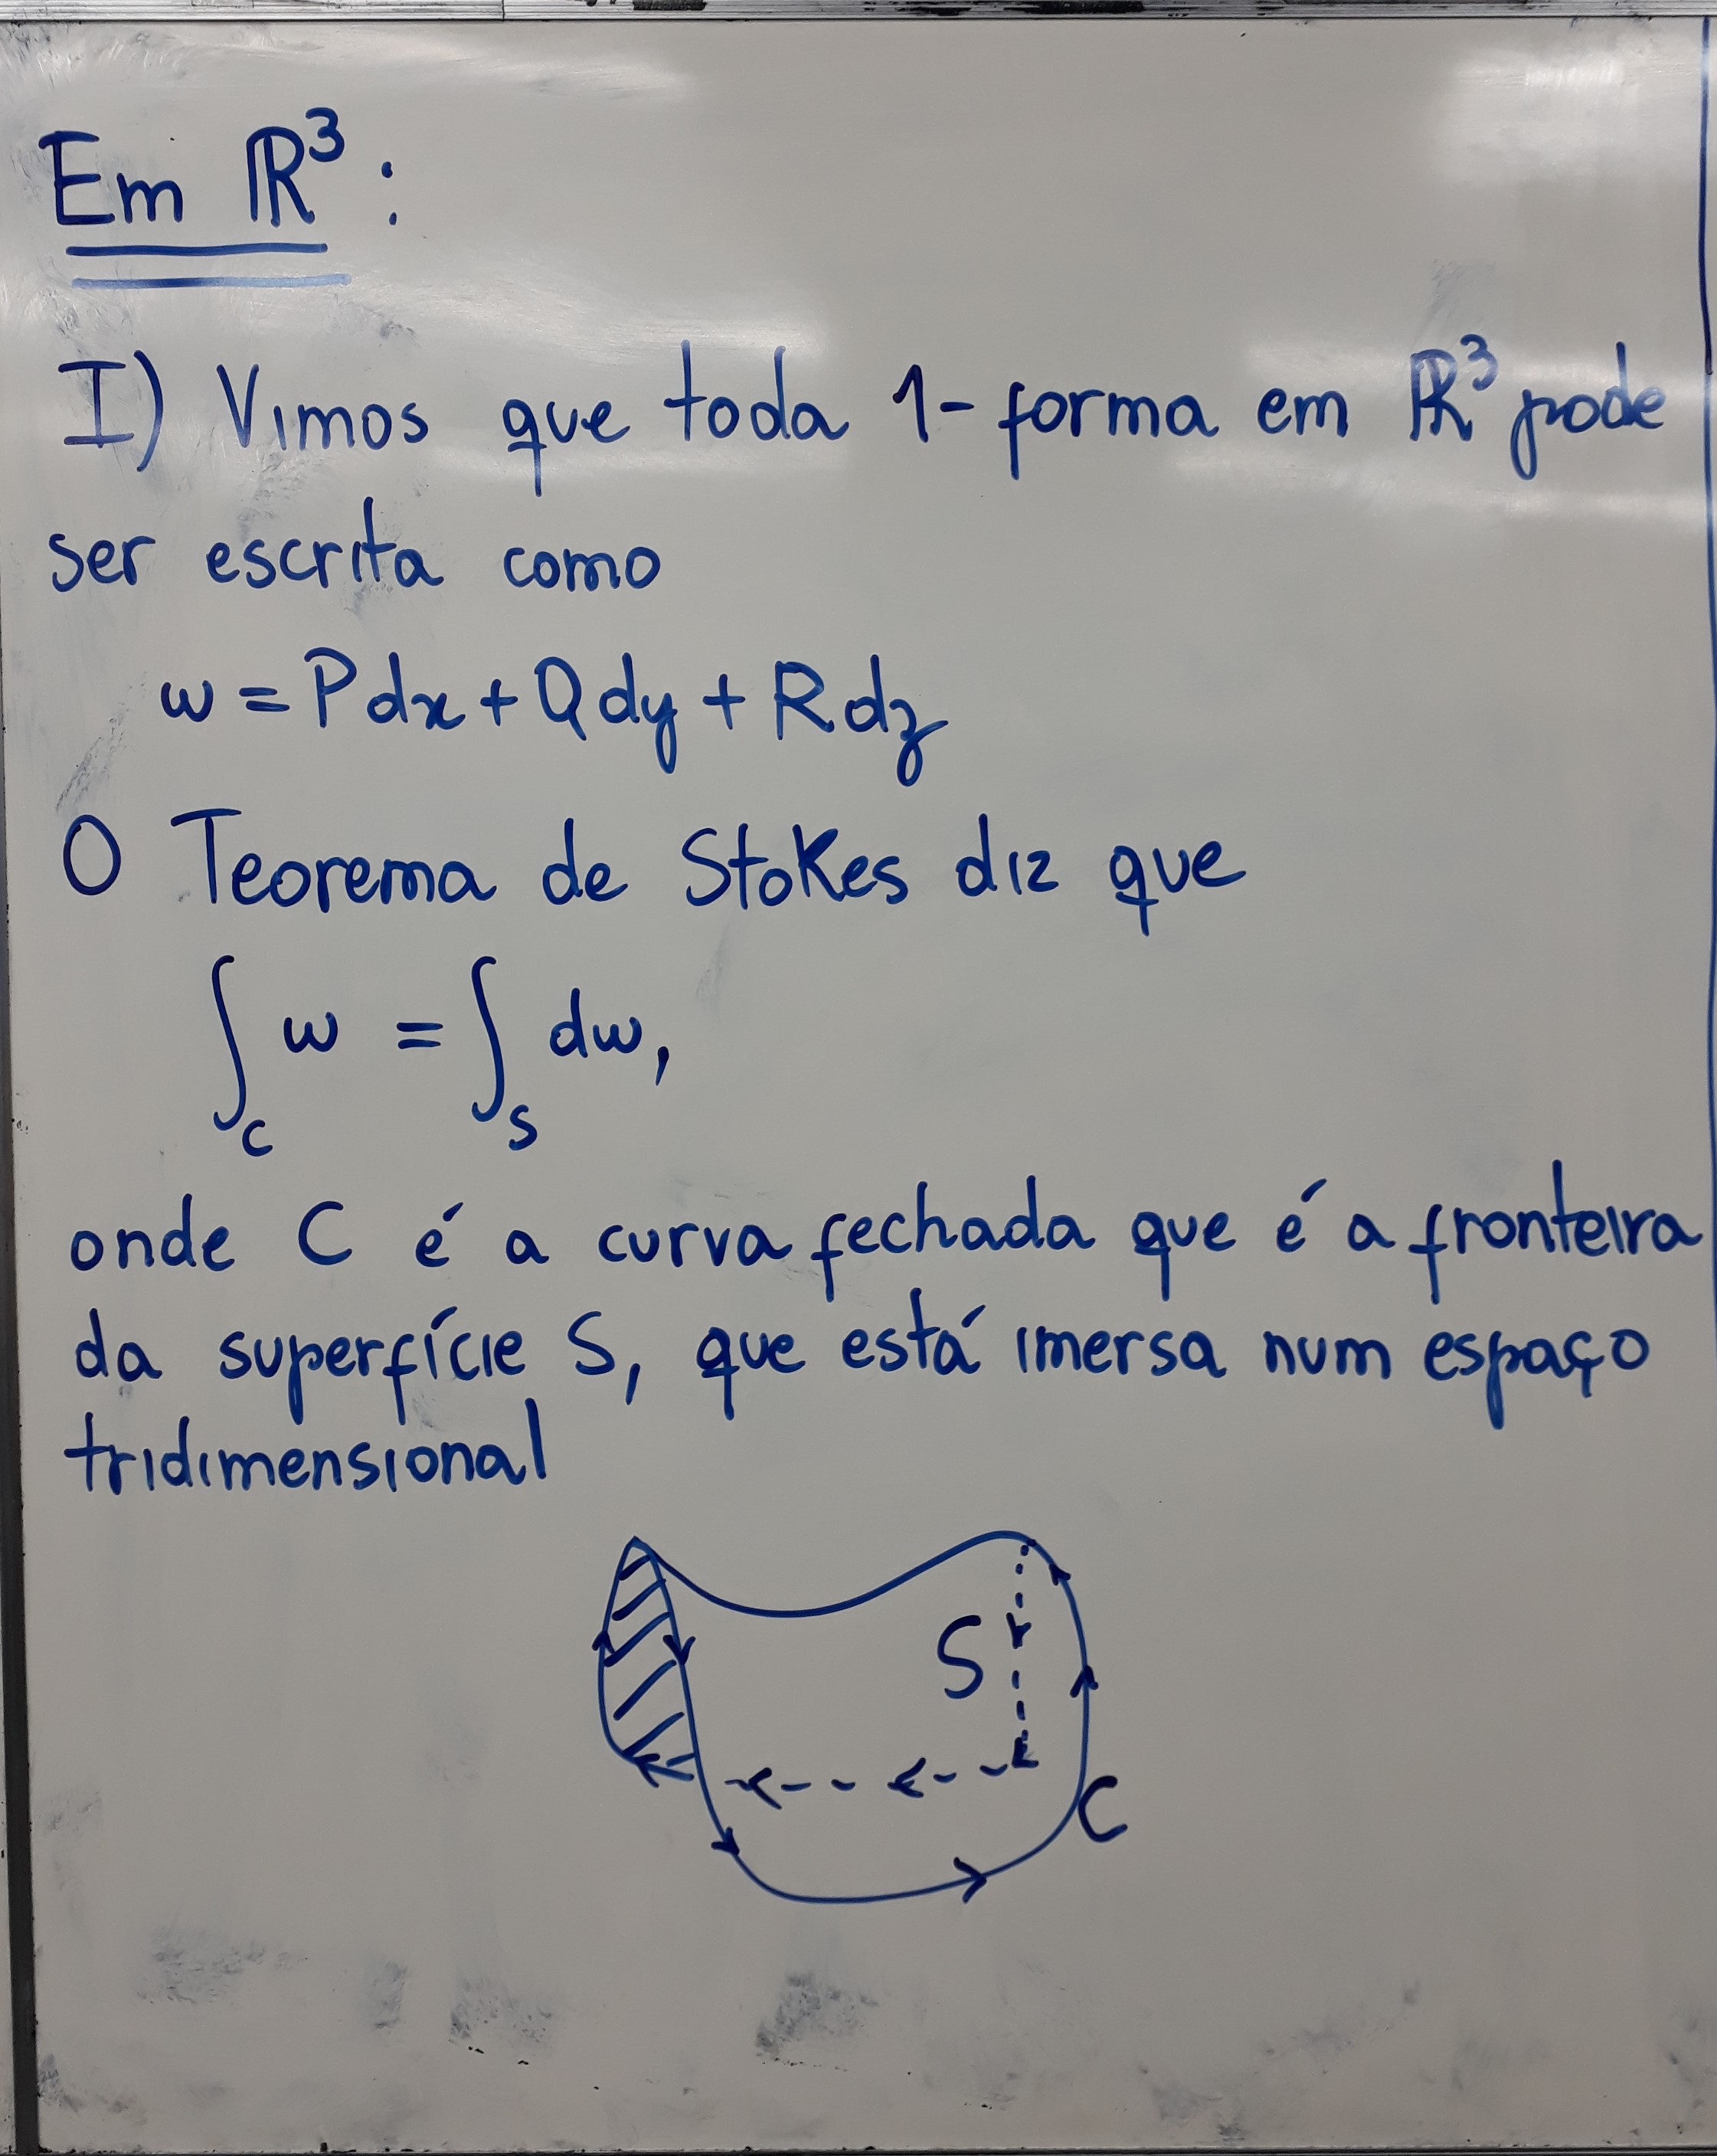 Em ℝ³:
I) Vimos que toda 1-forma em ℝ³ pode
ser escrita como
ω = Pdx + Qdy + Rdz
O Teorema de Stokes diz que
∫_C ω = ∫_S dω,
onde C é a curva fechada que é a fronteira
da superfície S, que está imersa num espaço
tridimensional
S
C